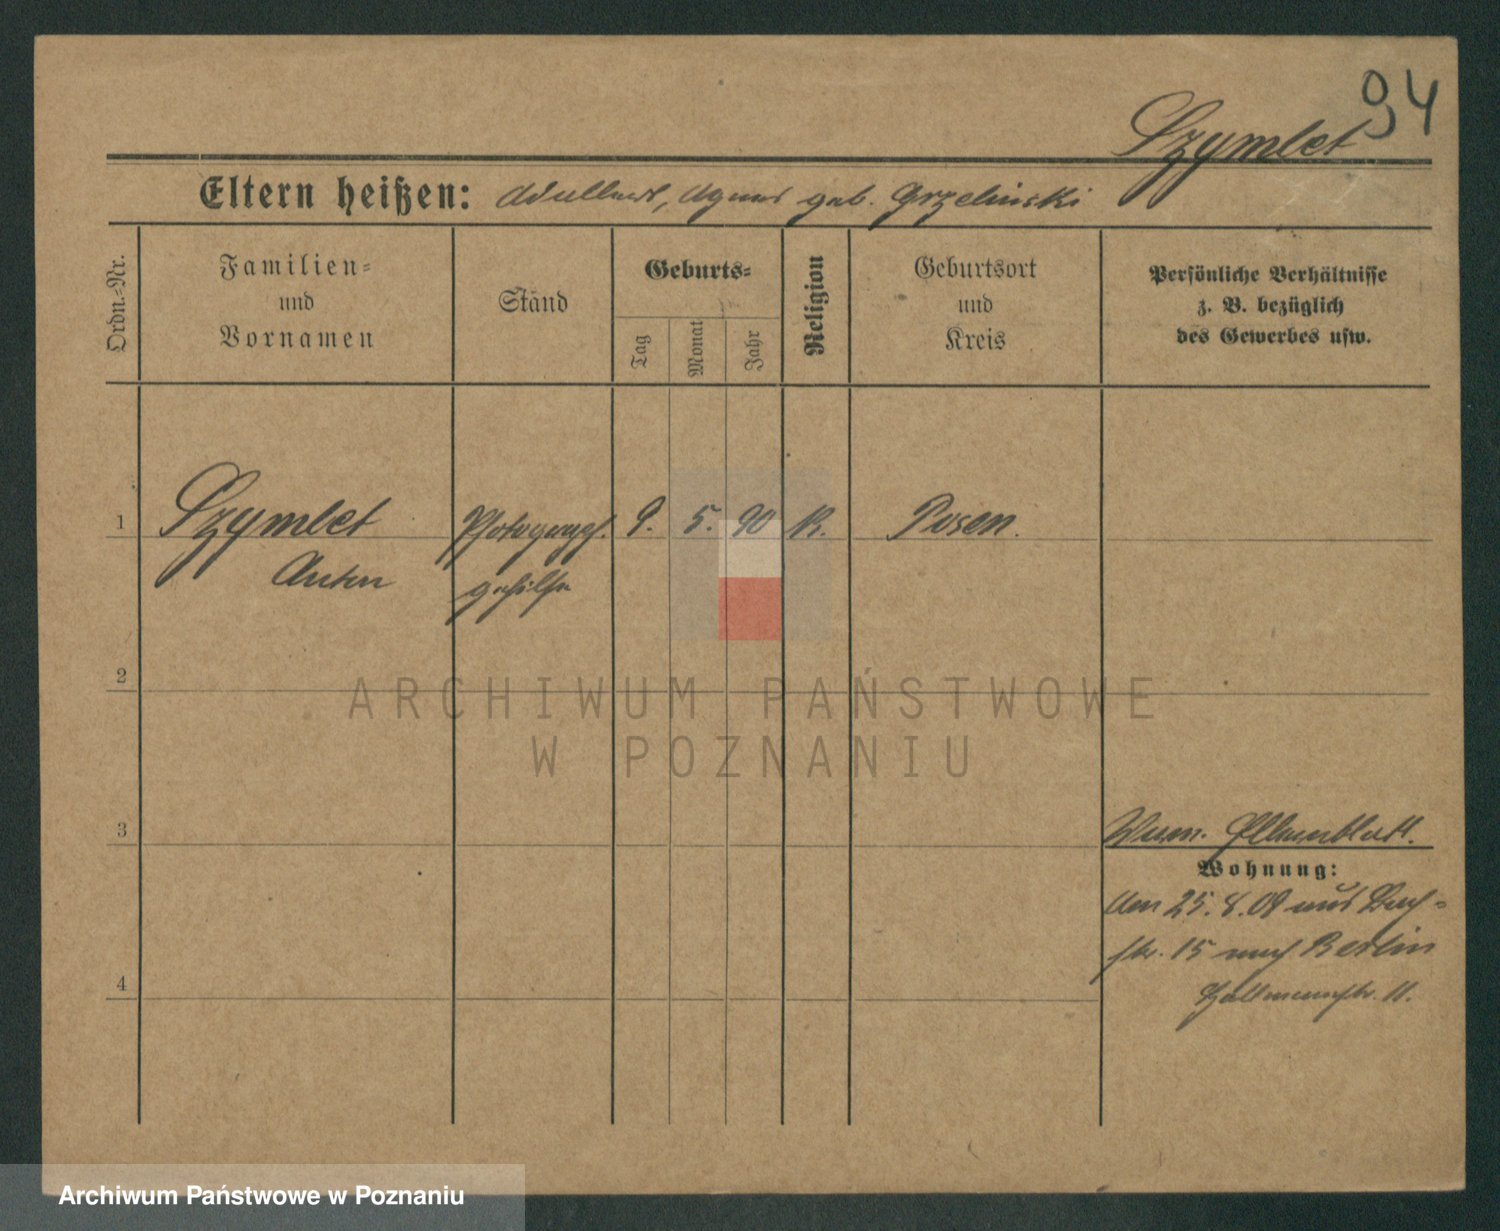 94
Szymlet
Eltern heißen: Adalbert, Agnes geb. Grzelinski
Ordn.-Nr.
Familien-
und
Vornamen
Stand
Geburts-
Tag
Monat
Jahr
Religion
Geburtsort
und
Kreis
Persönliche Verhältnisse
z. B. bezüglich
des Gewerbes usw.
1
Szymlet
Anton
Photograph.
gehilfe
9. 5. 90
K.
Posen.
2
3
4
Elternblatt.
Wohnung:
Am 25. 8. 08 aus
str. 15 nach Berlin
11.
ARCHIWUM PAŃSTWOWE
W POZNANIU
Archiwum Państwowe w Poznaniu